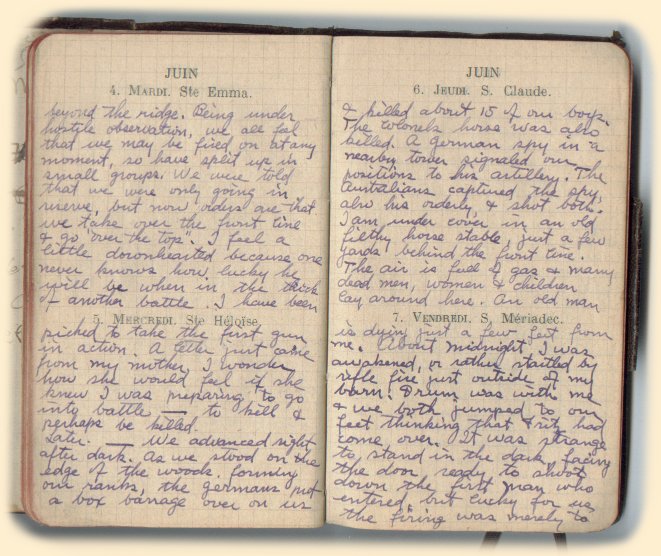 JUIN
4. MARDI. Ste Emma.
beyond the ridge. Being under
hostile observation, we all feel
that we may be fired on at any
moment, so have split up in
small groups. We were told
that we were only going in
reserve, but now orders are that
we take over the front line
& go "over the top". I feel a
little downhearted because one
never knows how lucky he
will be when in the thick
of another battle. I have been
5. MERCREDI. Ste Héloïse.
picked to take the first gun
in action. A letter just came
from my mother. I wonder
how she would feel if she
knew I was preparing to go
into battle — to kill &
perhaps be killed.
Later. — We advanced right
after dark. As we stood on the
edge of the woods forming
our ranks, the germans put
a box barrage over on us
JUIN
6. JEUDI. S. Claude.
& killed about 15 of our boys.
The Colonels horse was also
killed. A german spy in a
nearby tower signaled our
positions to his artillery. The
Australians captured the spy
also his orderly & shot both.
I am under cover in an old
filthy horse stable, just a few
yards behind the front line.
The air is full of gas & many
dead men, women & children
lay around here. An old man
7. VENDREDI. S. Mériadec.
is dying just a few feet from
me. About midnight I was
awakened, or rather startled by
rifle fire just outside of my
barn. Drum was with me
& we both jumped to our
feet thinking that Fritz had
come over. It was strange
to stand in the dark, facing
the door, ready to shoot
down the first man who
entered, but lucky for us
the firing was merely to